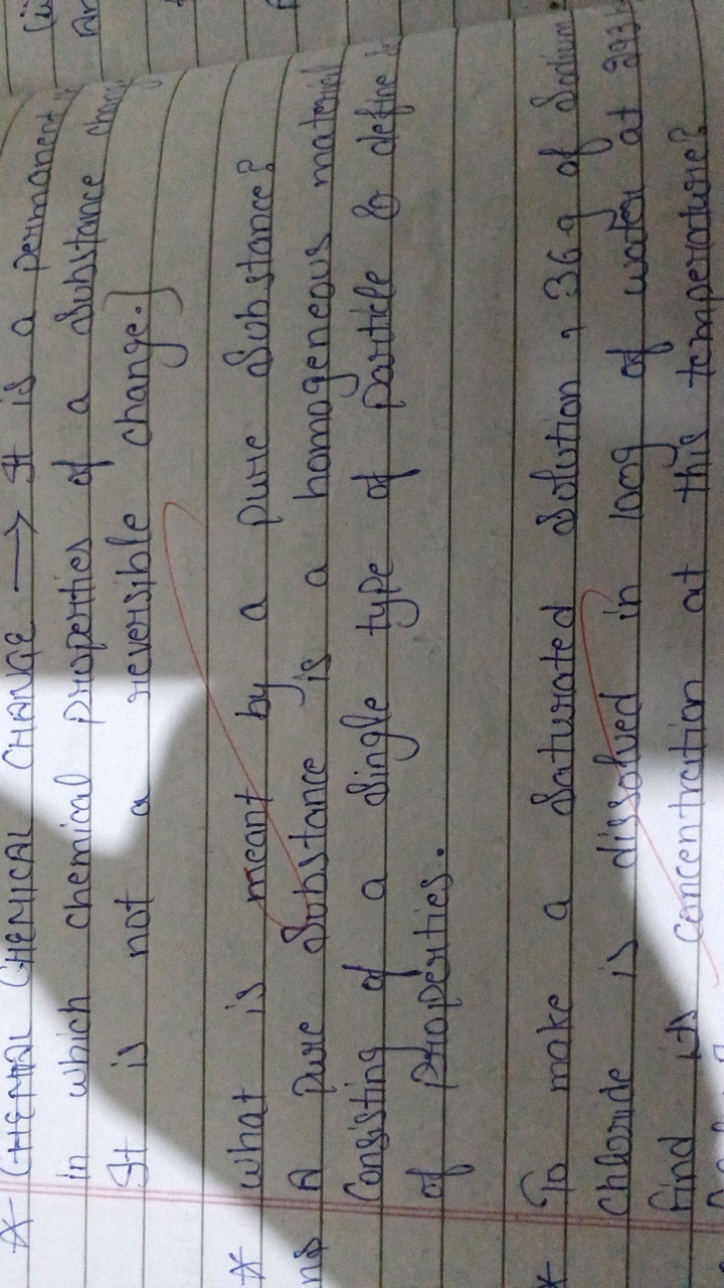 * CHEMICAL CHANGE → It is a permanent
in which chemical properties of a substance
It is not a reversible change.]
* What is meant by a pure substance?
ns A pure substance is a homogeneous material
Consisting of a single type of particle & define
of properties.
* To make a saturated solution, 36 g of Sodium
Chloride is dissolved in 100g of water at 293
find its concentration at this temperature?